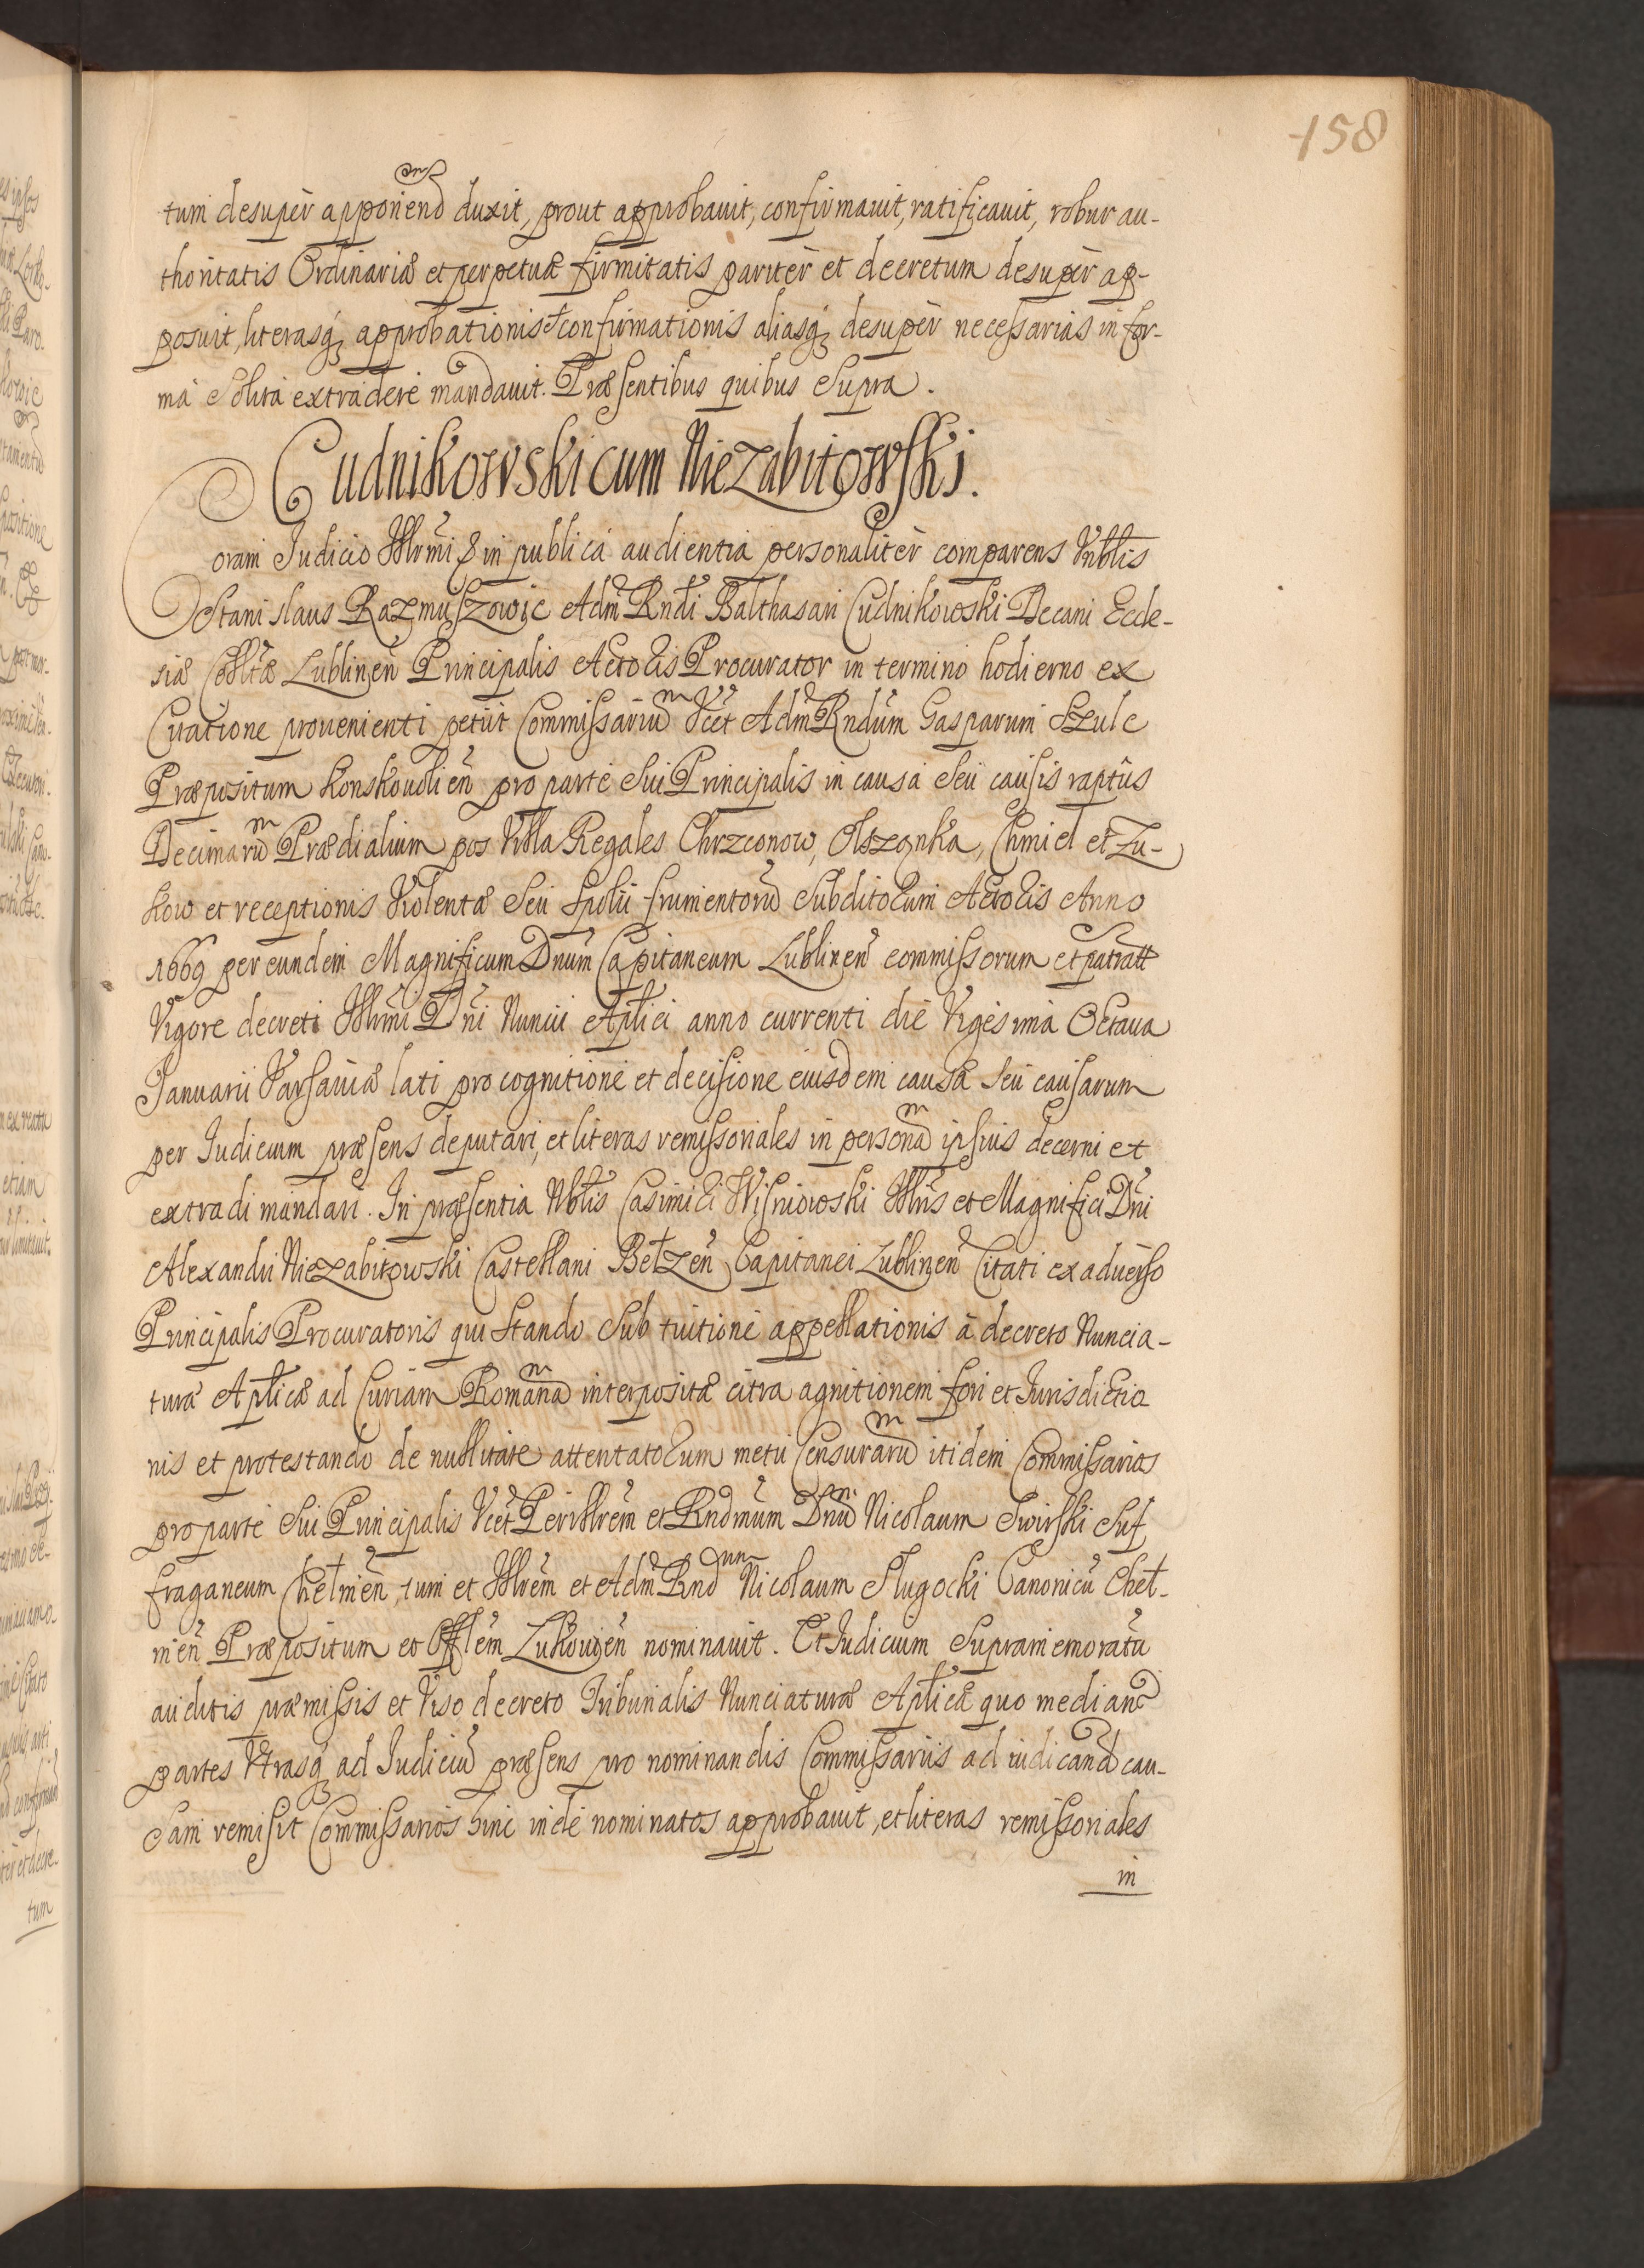 158
tum desuper apponendum duxit, prout approbauit, confirmauit, ratificauit, robur au-
thoritatis Ordinariæ et perpetuæ firmitatis pariter et decretum desupèr ap-
posuit, literasq approbationis et confirmationis aliasq desupèr necessarias in for-
mâ solitâ extradere mandauit. Præsentibus quibus supra.
Cudnikowski cum Niezabitowski.
Coram Judicio Illrmi & in publicâ audientia personalitèr comparens Nblis
Stanislaus Razmuszowic Adm Rndi Balthasari Cudnikowski Decani Eccle-
siæ Colltæ Lublinen̄ Principalis Actoris Procurator in termino hodierno ex
Citatione prouenienti petiit Commissarium Vcet Adm Rndum Gasparum Szulc
Præpositum Konskouolien̄ pro parte sui Principalis in causâ seù causis raptûs
Decimarum Prædialium pos Villa Regales Chrzconow, Olszanka, Chmiel et Zu-
kow et receptionis Violentæ seù spolii frumentorū subditorum Actoris Anno
1669 per eundem Magnificum Dnum Capitaneum Lublinen̄ commissorum et patratt
Vigore decreti Illrmi Dni Nuncii Aplici anno currenti die Vigesimâ Octaua
Januarii Varsauiæ lati pro cognitione et decisione eiusdem causæ seù causarum
per Iudicium præsens deputari, et literas remissoriales in personam ipsius decerni et
extradi mandari. In præsentia Nblis Casimiri Wisniowski Illris et Magnifici Dni
Alexandri Niezabitowski Castellani Bełzen̄ Capitanei Lublinen̄ Citati ex aduerso
Principalis Procuratoris qui stando sub tuitione appellationis à decreto Nuncia-
turæ Aplicæ ad Curiam Romanam interpositæ citra agnitionem fori et Jurisdictio
nis et protestando de nullitate attentatorum metu Censurarum itidem Commissarios
pro parte sui Principalis Vcet Perillrem et Rndmum Dnum Nicolaum Swirski Suf
fraganeum Chełmen̄, tum et Illrem et Adm Rndum Nicolaum Slugocki Canonicū Cheł-
men̄ Præpositum et Offlem Lukouien̄ nominauit. Et Iudicium supramemoratū
auditis præmissis et Viso decreto Tribunalis Nunciaturæ Aplicæ quo median
partes Vtrasq ad Judiciū præsens pro nominandis Commissariis ad iudicand cau-
sam remisit Commissarios hinc inde nominatos approbauit, et literas remissoriales
in